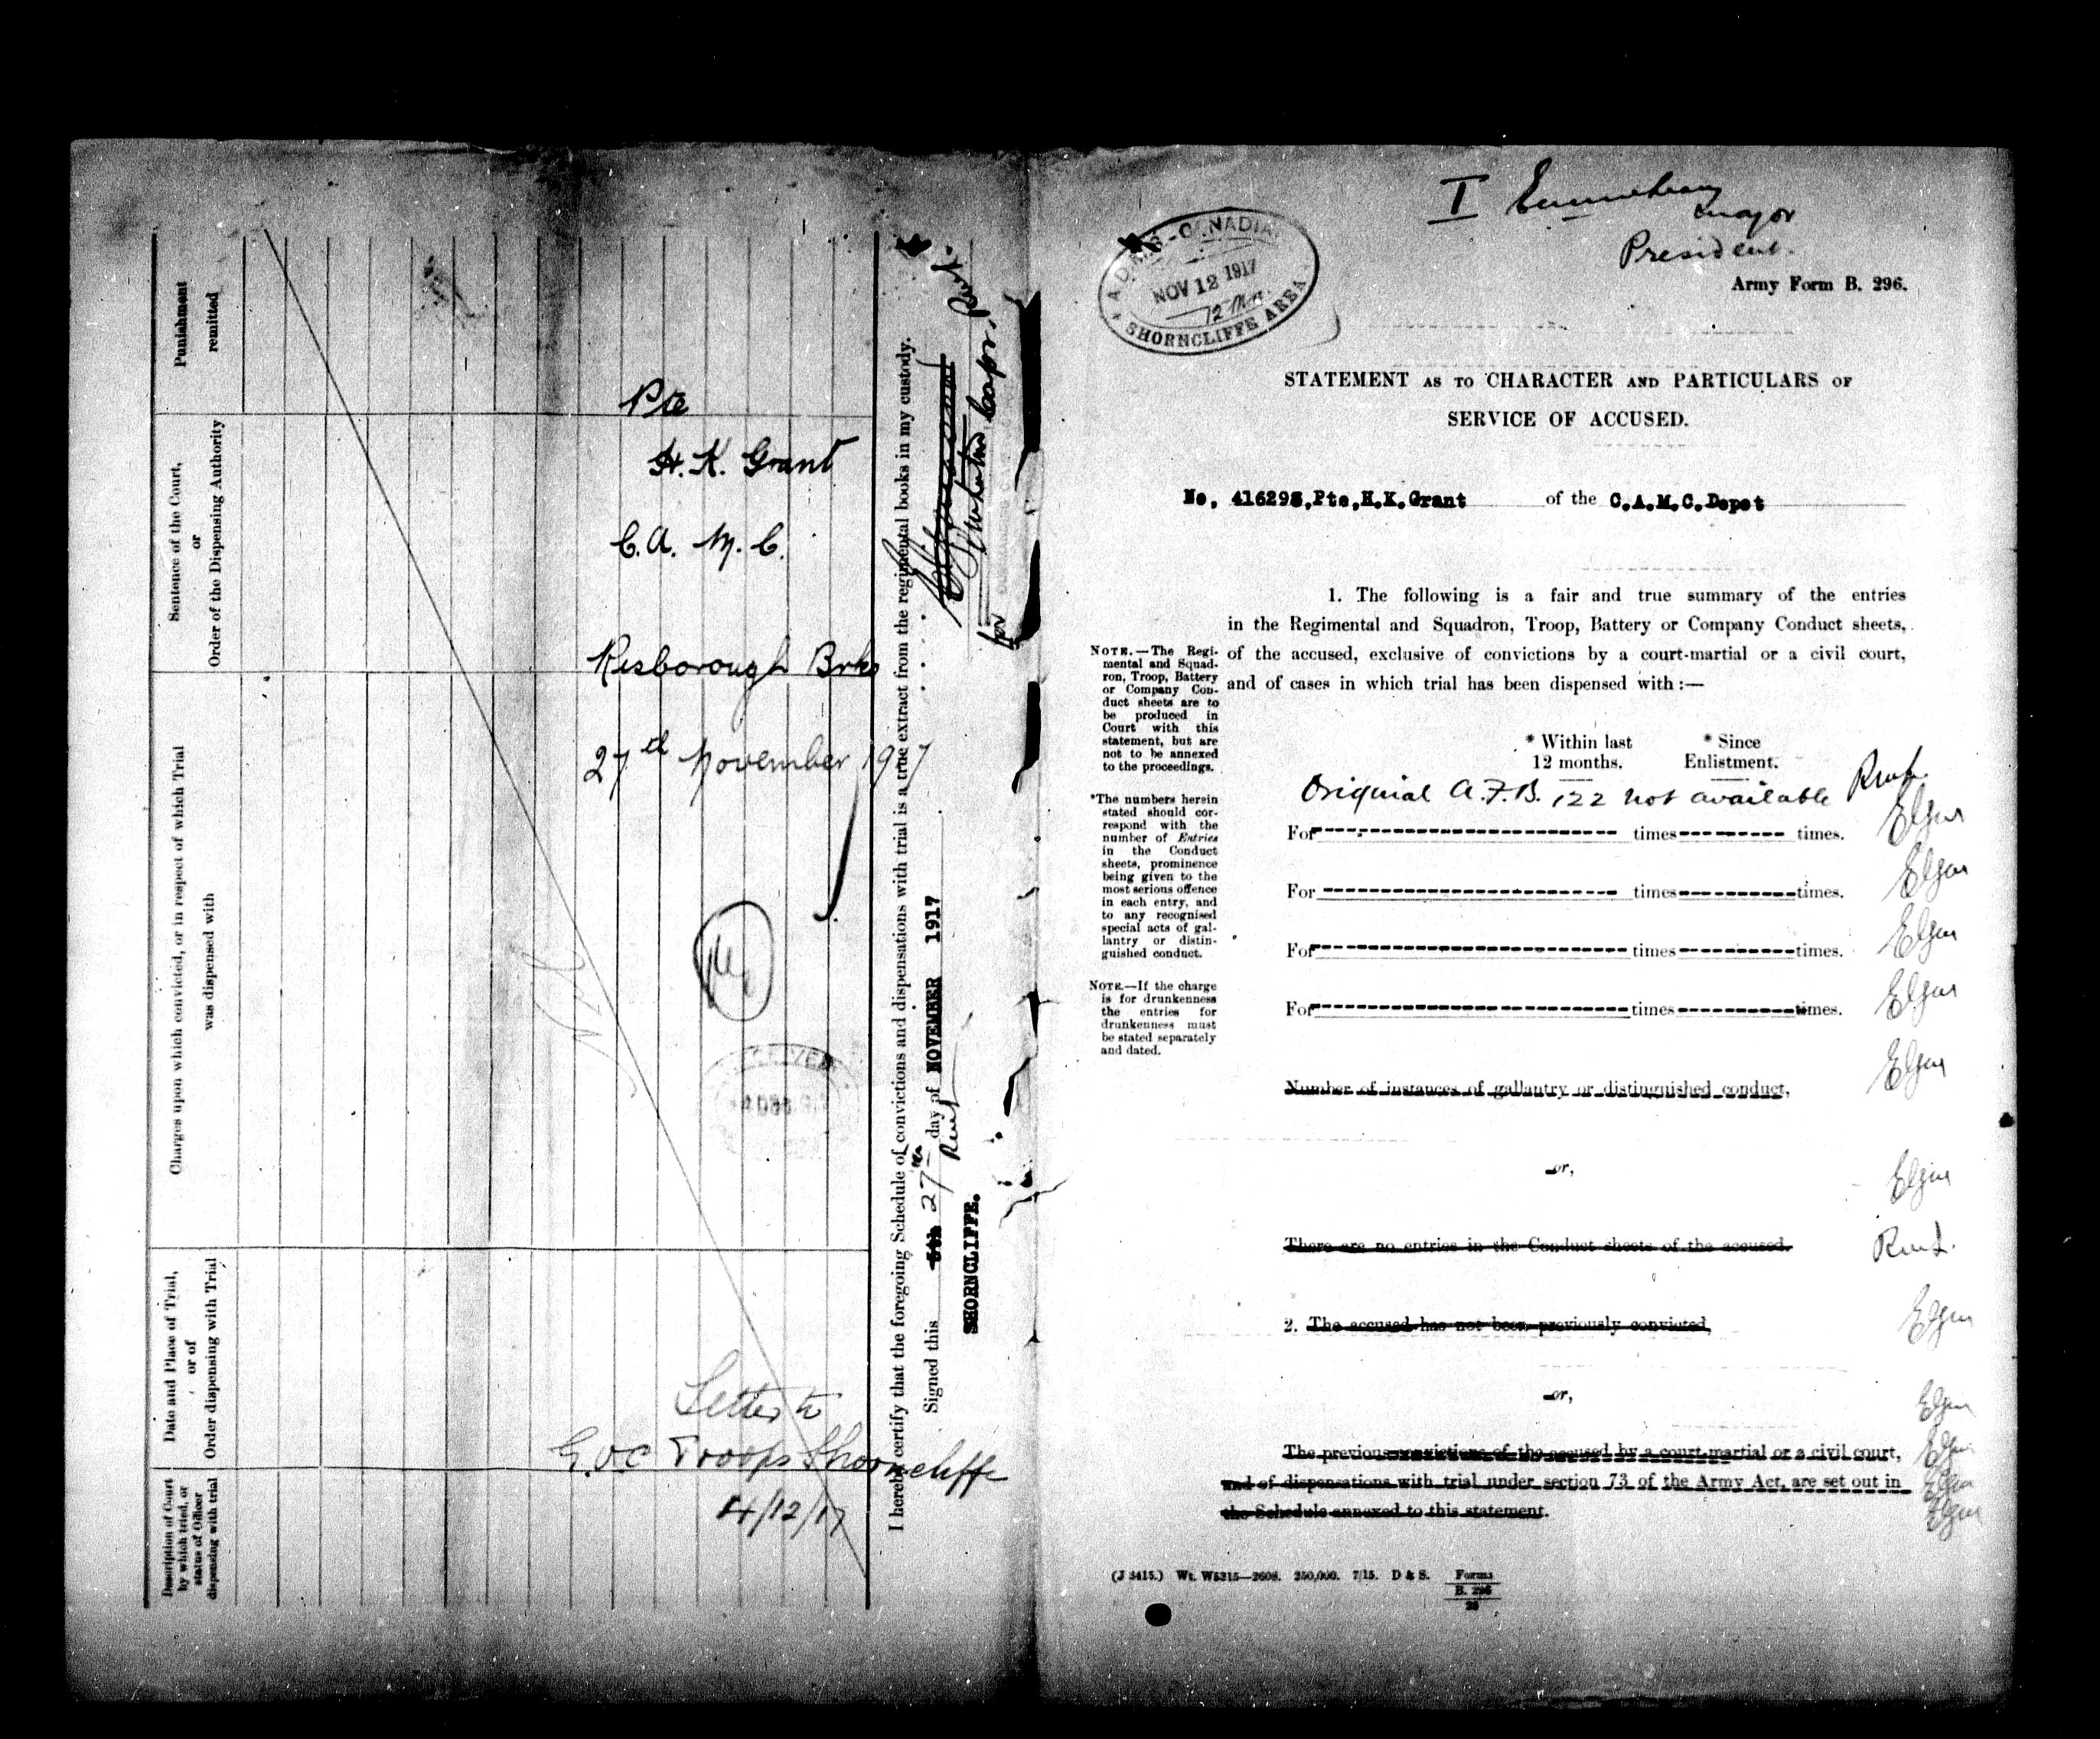 Punishment
remitted
Sentence of the Court,
or
Order of the Dispensing Authority
Charges upon which convicted, or in respect of which Trial
was dispensed with
Date and Place of Trial,
or of
Order dispensing with Trial
Description of Court
by which tried, or
status of Officer
dispensing with trial
Pte
H. K. Grant
C. A. M. C.
Risborough Brks
27th November 1917
Nil
Letter to
G.O.C Troops Shorncliffe
4/12/17
I hereby certify that the foregoing Schedule of convictions and dispensations with trial is a true extract from the regimental books in my custody.
Signed this 5th 27th day of NOVEMBER 1917
SHORNCLIFFE.
Capt.
for
I
Major
President.
A.D.M.S-CANADIAN
NOV 12 1917
SHORNCLIFFE AREA
Army Form B. 296.
STATEMENT AS TO CHARACTER AND PARTICULARS OF
SERVICE OF ACCUSED.
No, 416298,Pte,H.K.Grant of the C.A.M.C.Depot
1. The following is a fair and true summary of the entries
in the Regimental and Squadron, Troop, Battery or Company Conduct sheets,
of the accused, exclusive of convictions by a court-martial or a civil court,
and of cases in which trial has been dispensed with :—
NOTE.—The Regi-
mental and Squad-
ron, Troop, Battery
or Company Con-
duct sheets are to
be produced in
Court with this
statement, but are
not to be annexed
to the proceedings.
*The numbers herein
stated should cor-
respond with the
number of Entries
in the Conduct
sheets, prominence
being given to the
most serious offence
in each entry, and
to any recognised
special acts of gal-
lantry or distin-
guished conduct.
NOTE.—If the charge
is for drunkenness
the entries for
drunkenness must
be stated separately
and dated.
* Within last * Since
12 months. Enlistment.
Original A.F.B. 122 not available
For times times.
For times times.
For times times.
For times times.
Number of instances of gallantry or distinguished conduct,
or,
There are no entries in the Conduct sheets of the accused.
2. The accused has not been previously convicted,
or,
The previous convictions of the accused by a court-martial or a civil court,
and of dispensations with trial under section 73 of the Army Act, are set out in
the Schedule annexed to this statement.
(J 3415.) Wt. W5215—2608. 250,000. 7/15. D & S. Forms
B. 296